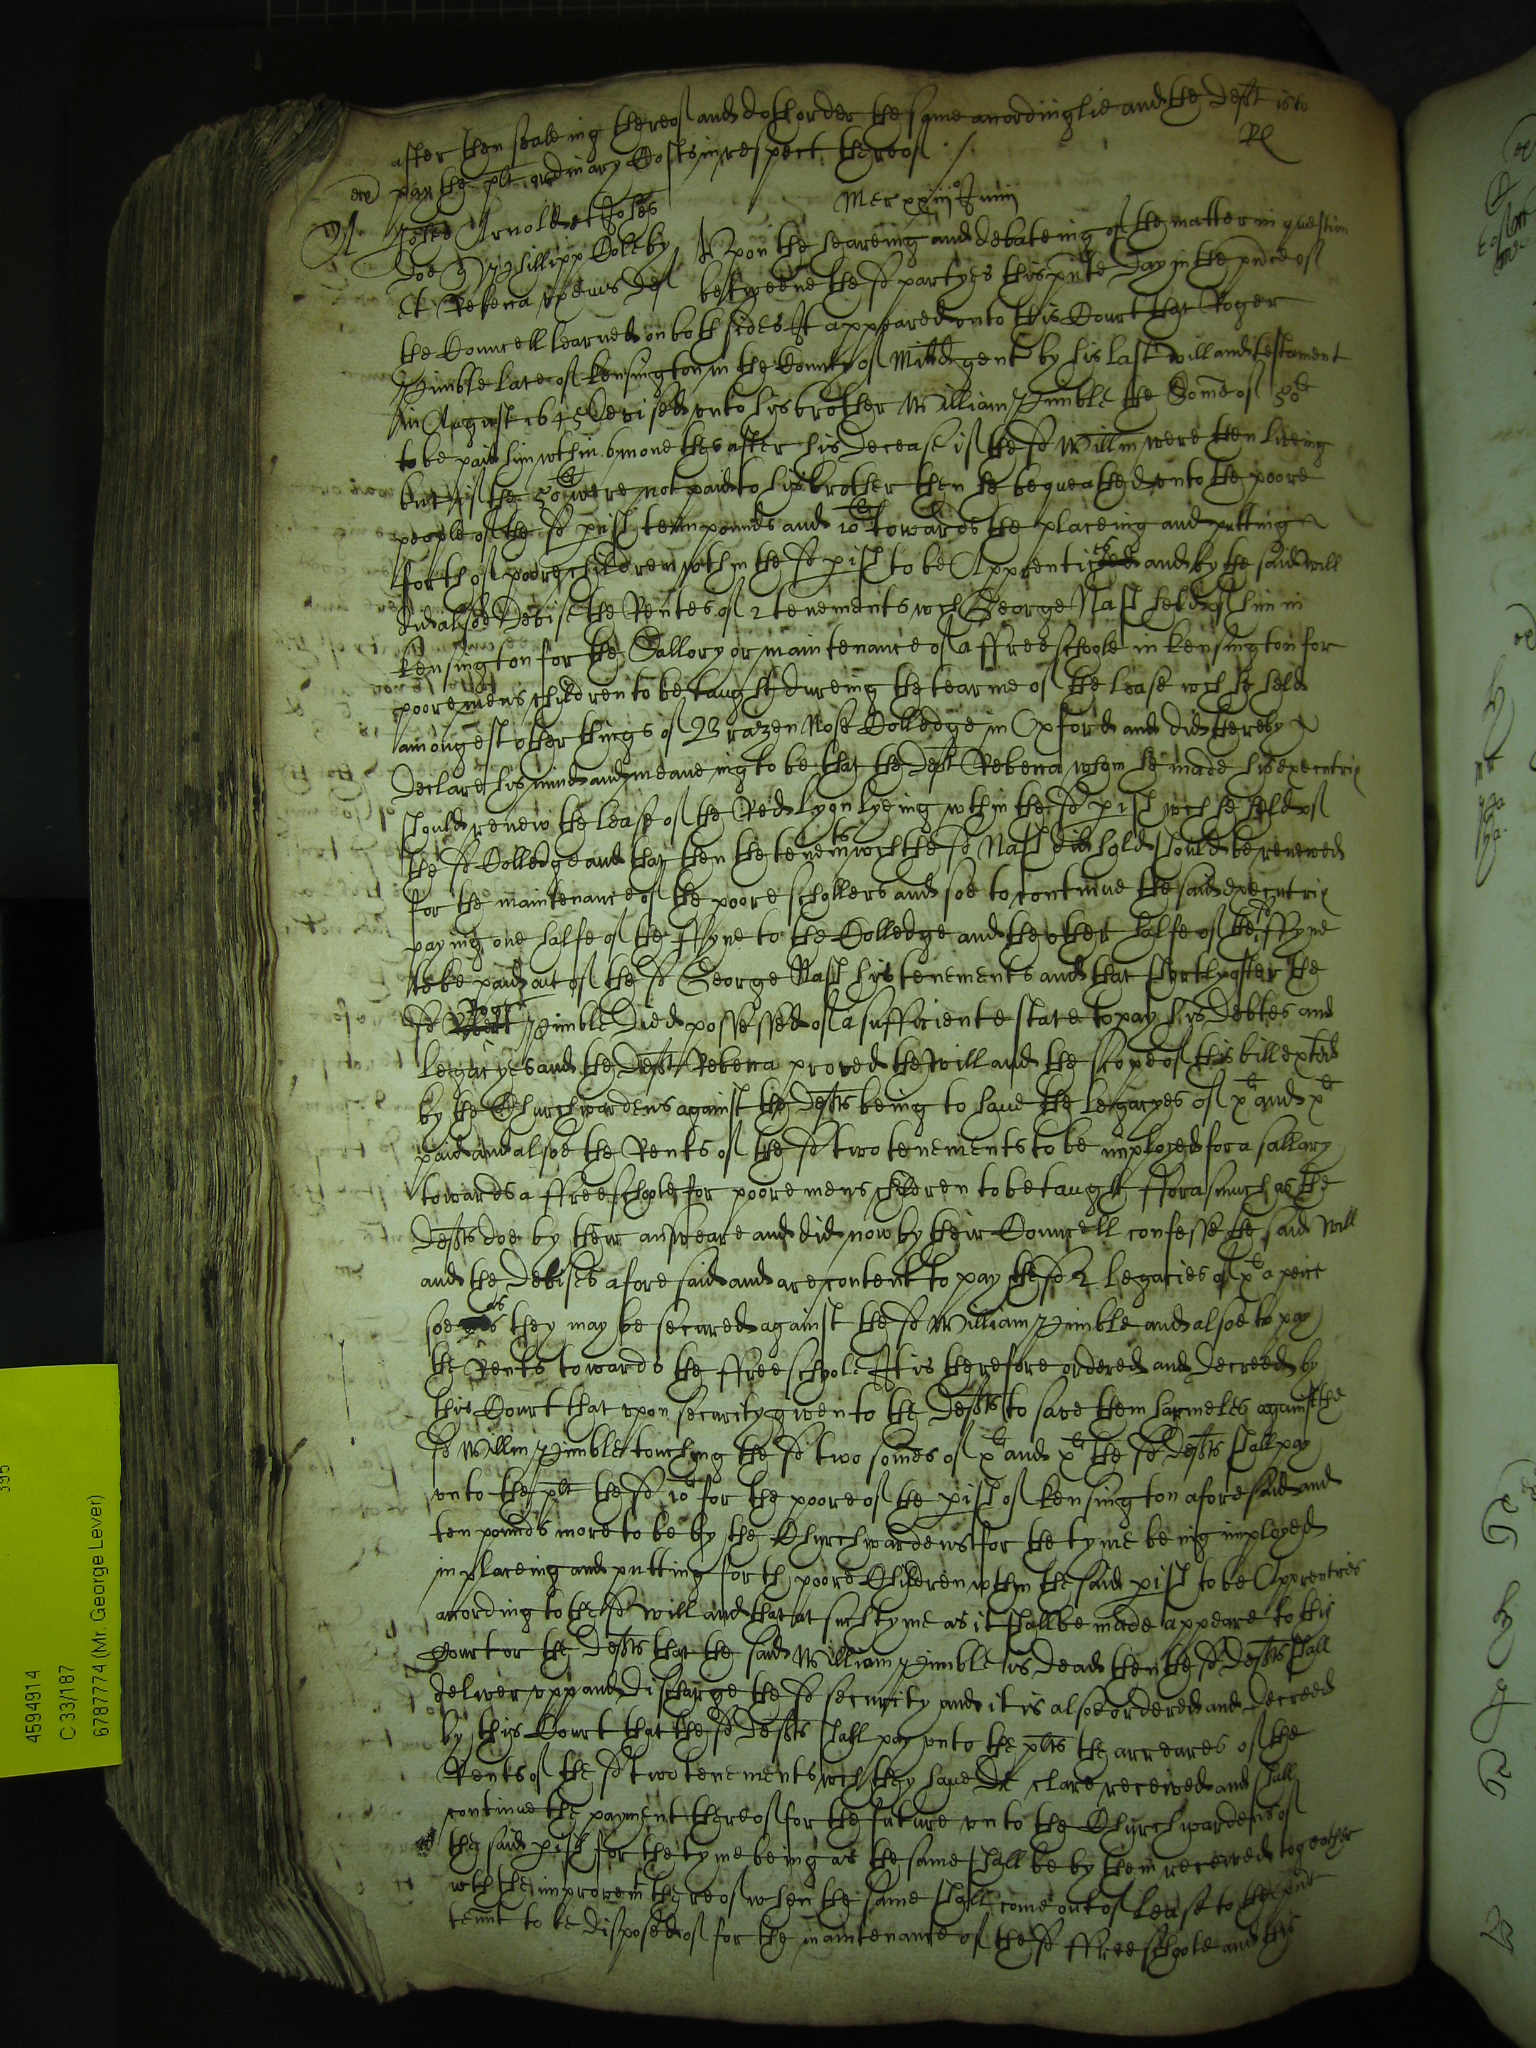 after then sealeing thereof and doth order the same accordinglie and the Deft is to
pay the plt ordinary Costs in respect thereof ./. Rl
Mer xxiiijo Junij
Arnold et
Quer Phillipp Coleby
et Rebecca ux eius def
Upon the heareing and debateing of the matter in question
betweene the sd partyes this pnte Day in the pnce of
the Councell learned on both sides It appeared unto this Court that Roger
Pimble late of Kensington in the County of Midd gent by his last will and testament
in August 1645 Devised unto his brother William Pimble the Some of 50li
to be paid him wthin 6 monethes after his decease if the sd Willm were then liveing
but if the 50li were not paid to his brother then he bequeathed unto the poore
people of the sd pish tenn pounds and 10li towards the placeing and putting
forth of poore children wthin the sd pish to be Apprentices and by the said will
did alsoe Devise the Rentes of 2 tenements wch George Nash held of him in
Kensington for the Sallory or maintenance of a ffree schoole in Kensington for
poore mens children to be taught dureing the tearme of the lease wch he held
amongest other things of Brazen Nose Colledge in Oxford and did thereby
Declare his mind and meaneing to be that the Deft Rebecca whom he made his executrix
should renew the lease of the Red Lyon lyeing wthin the sd pish wch he held of
the sd Colledge and that then the tenemts wch the sd Nash did hold should be renewed
for the maintenance of the poore schollers and soe to continue the said executrix
paying one halfe of the ffyne to the Colledge and the other halfe of the sd ffyne
to be paid out of the sd George Nash his tenements and that shortly after the
sd Roger Pimble Died possessed of a sufficient estate to pay his Debtes and
Legacyes and the Deft Rebecca proved the Will and the scope of this bill exhted
by the Churchwardens against the Defts being to have the legacyes of xli and xli
paid and alsoe the Rents of the sd two tenements to be imployed for a sallary
towards a ffree schoole for poore mens children to be taught fforasmuch as the
Defts doe by their answeare and did now by their Councell confesse the said Will
and the Devises aforesaid and are content to pay the sd 2 legacies of xli a peice
soe as they may be secured against the sd William Pimble and alsoe to pay
the Rents towards the ffree schoole It is therefore ordered and Decreed by
this Court that upon security given to the Defts to save them harmeles against the
sd Willm Pimble touching the sd two somes of xli and xli the sd Defts shall pay
unto the plt the sd 10li for the poore of the pish of Kensington aforesaid and
ten pounds more to be by the Churchwardens for the tyme being imployed
in placeing and putting forth poore Children wthin the said pish to be Apprentices
according to the sd will and that at such tyme as it shall be made appeare to this
Court or the Defts that the said William Pimble is dead then the sd Defts shall
deliver upp and discharge the sd security and it is alsoe ordered and Decreed
by this Court that the sd Defts shall pay unto the plts the arreares of the
Rents of the sd two tenements wch they have De clare received and shall
continue the payment thereof for the future unto the Churchwardens of
the said pish for the tyme being as the same shall be by them received together
wth the improvemt thereof when the same shall come out of lease to the pnt
tennt to be disposed of for the maintenance of the sd ffree schoole and this
395
4594914
C 33/187
6787774 (Mr. George Lever)